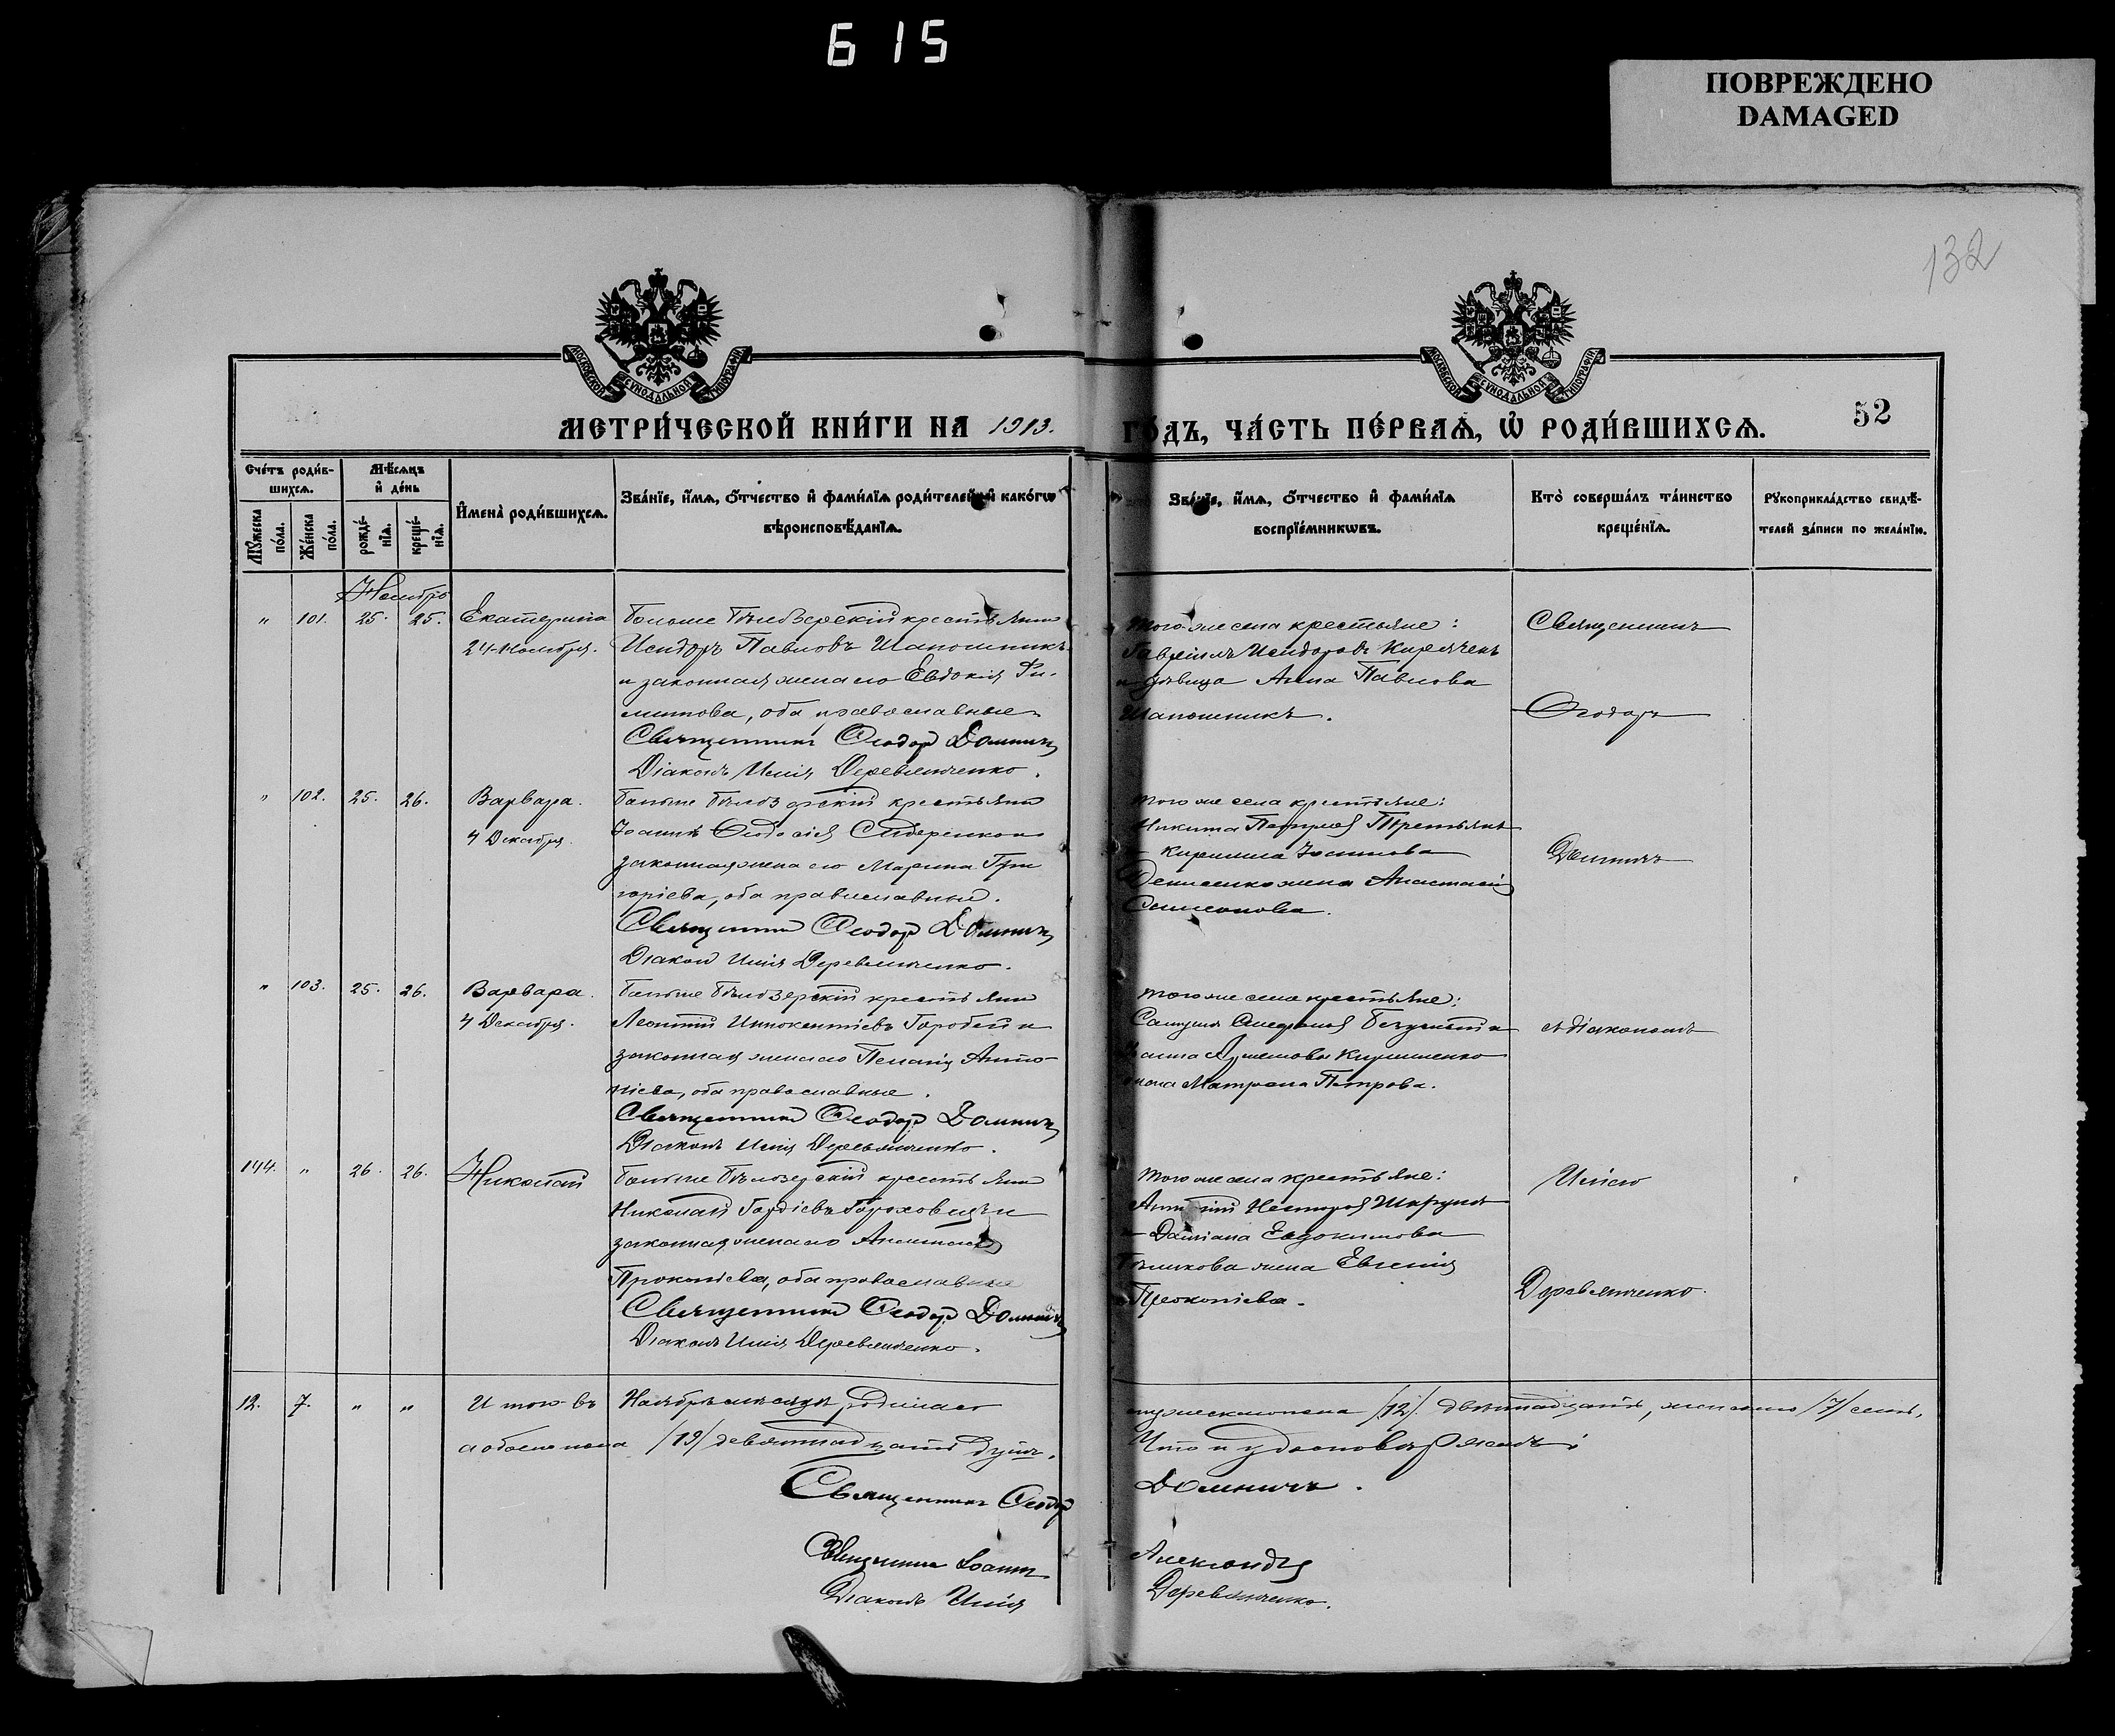 615
ПОВРЕЖДЕНО
DAMAGED
132
МОСКОВСКОЙ СѴНОДАЛЬНОЙ ТИПОГРАФІИ
МОСКОВСКОЙ СѴНОДАЛЬНОЙ ТИПОГРАФІИ
МЕТРИ́ЧЕСКОЙ КНИ́ГИ НА 1913.
ГО́ДЪ, ЧА́СТЬ ПЕ́РВАѦ, Ѡ РОДИ́ВШИХСѦ.
52
Сче́тъ роди́в-
шихсѧ.
Мꙋ́жеска по́ла.
Же́нска по́ла.
Мѣ́сѧцъ
и́ де́нь
рожде́-
нїѧ.
креще́-
нїѧ.
И́мена̀ роди́вшихсѧ.
Зва́нїе, и́мѧ, ѻ́тчество и́ фами́лїѧ роди́телей, и́ како́гѡ
вѣроисповѣ́данїѧ.
Зва́нїе, и́мѧ, ѻ́тчество и́ фами́лїѧ
воспрїе́мникѡвъ.
Кто̀ соверша́лъ та́инство
креще́нїѧ.
Рꙋкоприкла́дство свидѣ́-
телей за́писи по жела́нїю.
Ноября
" 101. 25. 25. Екатерина
24 Ноября.
Больше Бѣлозерскій крестьянин
Исидоръ Павловъ Шапошникъ
и законная жена его Евдокія Фи-
липова, оба православные
Священникъ Ѳеодоръ Домничъ
Діаконъ Илія Деревянченко.
того же села крестьяне:
Гавріилъ Исидоровъ
и дѣвица Анна Павлова
Шапошникъ.
Священникъ
Ѳеодоръ
" 102. 25. 26. Варвара.
4 Декабря.
Больше Бѣлозерскій крестьянин
Іоаннъ Ѳеодосіев Сидоренко и
законная жена его Марина Гри
горіева, оба православные.
Священник Ѳеодор Домничъ
Діакон Илія Деревянченко.
того же села крестьяне:
Никита
Кирилла
Денисенко жена Анастасія
Симеонова.
Домничъ
" 103. 25. 26. Варвара.
4 Декабря.
Больше Бѣлозерскій крестьянин
Леонтій Иннокентіевъ Горобей и
законная жена его Пелагія Анто-
ніева, оба православные.
Священник Ѳеодор Домничъ
Діаконъ Илія Деревянченко.
того же села крестьяне:
Кириленко
жена Матрона Петрова.
с діакономъ
144. " 26. 26. Николай
Больше Бѣлозерскій крестьянин
Николай Гордіевъ Гороховецъ и
законная жена его Анастасія
Прокопіева, оба православные
Священник Ѳеодор Домничъ
Діаконъ Илія Деревянченко.
того же села крестьяне:
Антоній Несторов
и Даміана Евдокимова
жена Евгенія
Прокопіева.
Иліею
Деревянченко.
12. 7. " " Итого въ Ноябрѣ мѣсяцѣ родилось
мужеска пола /12/. двѣнадцать, женскаго /7/ семь,
а обоего пола /19/ девятнадцать душъ.
Что и удостовѣряемъ:
Священникъ Ѳеодор
Домничъ.
Священникъ Іоаннъ
Александръ
Діаконъ Илія
Деревянченко.